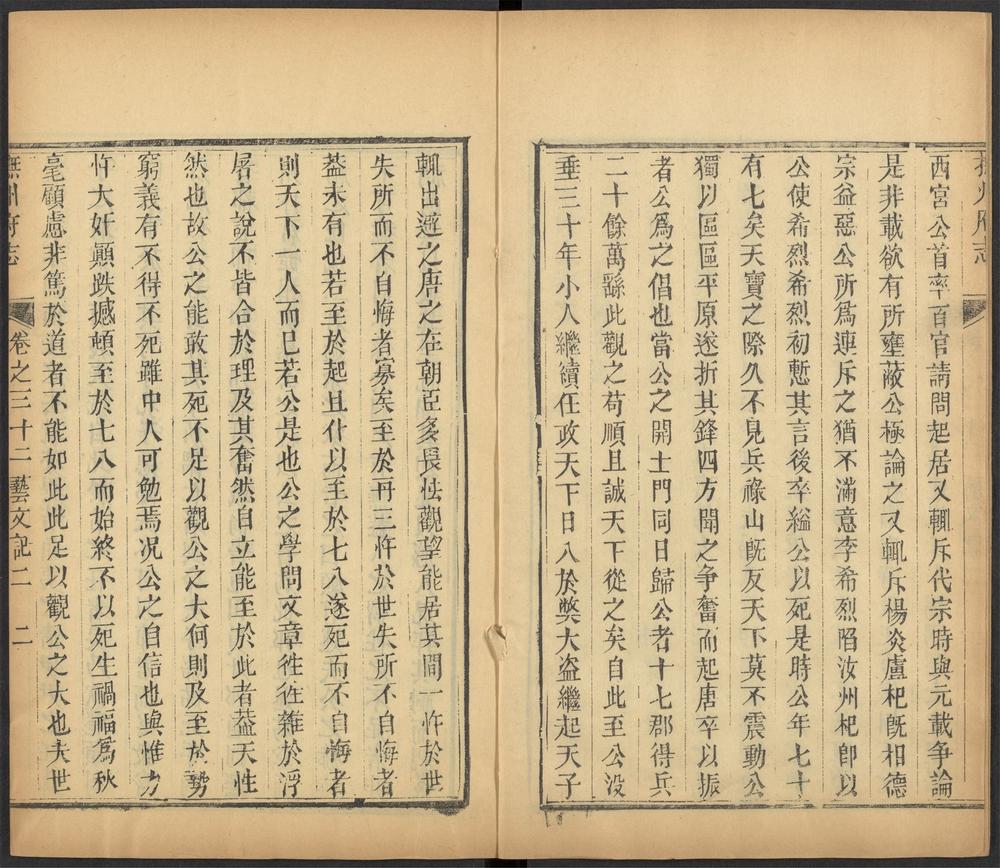 撫州府志
西宮公首率百官請問起居又輒斥代宗時與元載爭論
是非載欲有所壅蔽公極論之又輒斥楊炎盧杞旣相德
宗益惡公所爲連斥之猶不滿意李希烈陷汝州杞卽以
公使希烈希烈初慙其言後卒縊公以死是時公年七十
有七矣天寶之際久不見兵祿山旣反天下莫不震動公
獨以區區平原遂折其鋒四方聞之争奮而起唐卒以振
者公爲之倡也當公之開土門同日歸公者十七郡得兵
二十餘萬繇此觀之苟順且誠天下從之矣自此至公没
垂三十年小人繼續任政天下日入於獘大盗繼起天子
輒出避之唐之在朝臣多畏怯觀望能居其間一忤於世
失所而不自悔者寡矣至於再三忤於世失所不自悔者
葢未有也若至於起且仆以至於七八遂死而不自悔者
則天下一人而已若公是也公之學問文章徃徃雜於浮
屠之說不皆合於理及其奮然自立能至於此者葢天性
然也故公之能敢其死不足以觀公之大何則及至於勢
窮義有不得不死雖中人可勉焉况公之自信也與惟力
忤大奸顚跌撼頓至於七八而始終不以死生禍福爲秋
毫顧慮非篤於道者不能如此此足以觀公之大也夫世
撫州府志 卷之三十二 藝文記二 二